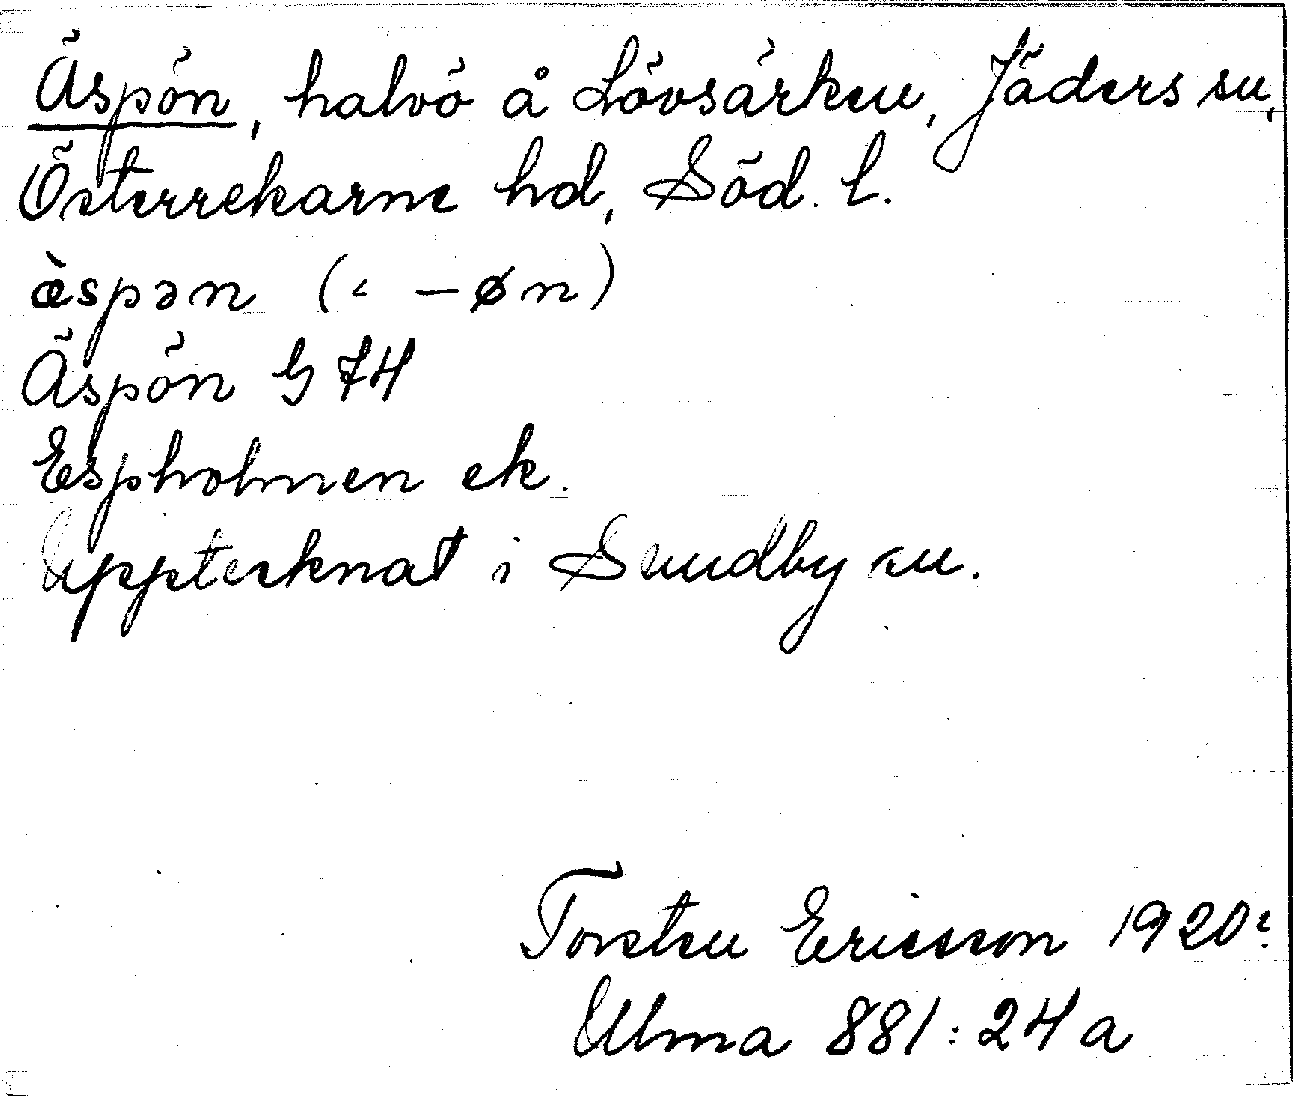 Äspön, halvö å Lövsärken, Jäders sn,
Österrekarne hd, Söd. l.
ὲspən (< -øn)
Äspön G 74
Espholmen ek.
Upptecknat i Sundby sn.
Torsten Ericsson 1920?
Ulma 881:24a